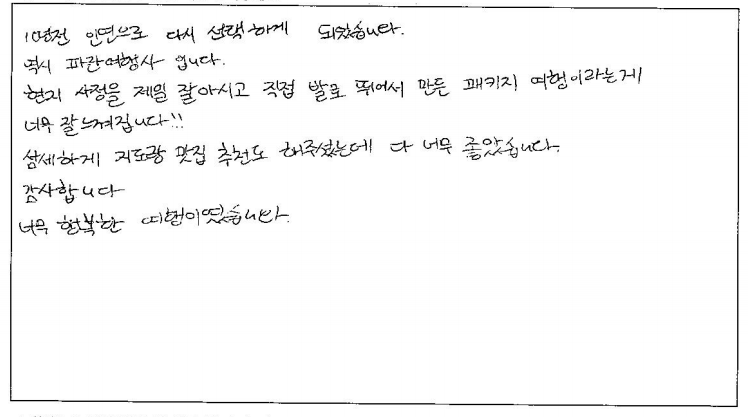 10년전 인연으로 다시 선택하게 되었습니다.
역시 파란여행사 입니다.
현지 사정을 제일 잘아시고 직접 발로 뛰어서 만든 패키지 여행이라는게
너무 잘느껴집니다!!
섬세하게 지도랑 맛집 추천도 해주셨는데 다 너무 좋았습니다.
감사합니다
너무 행복한 여행이였습니다.